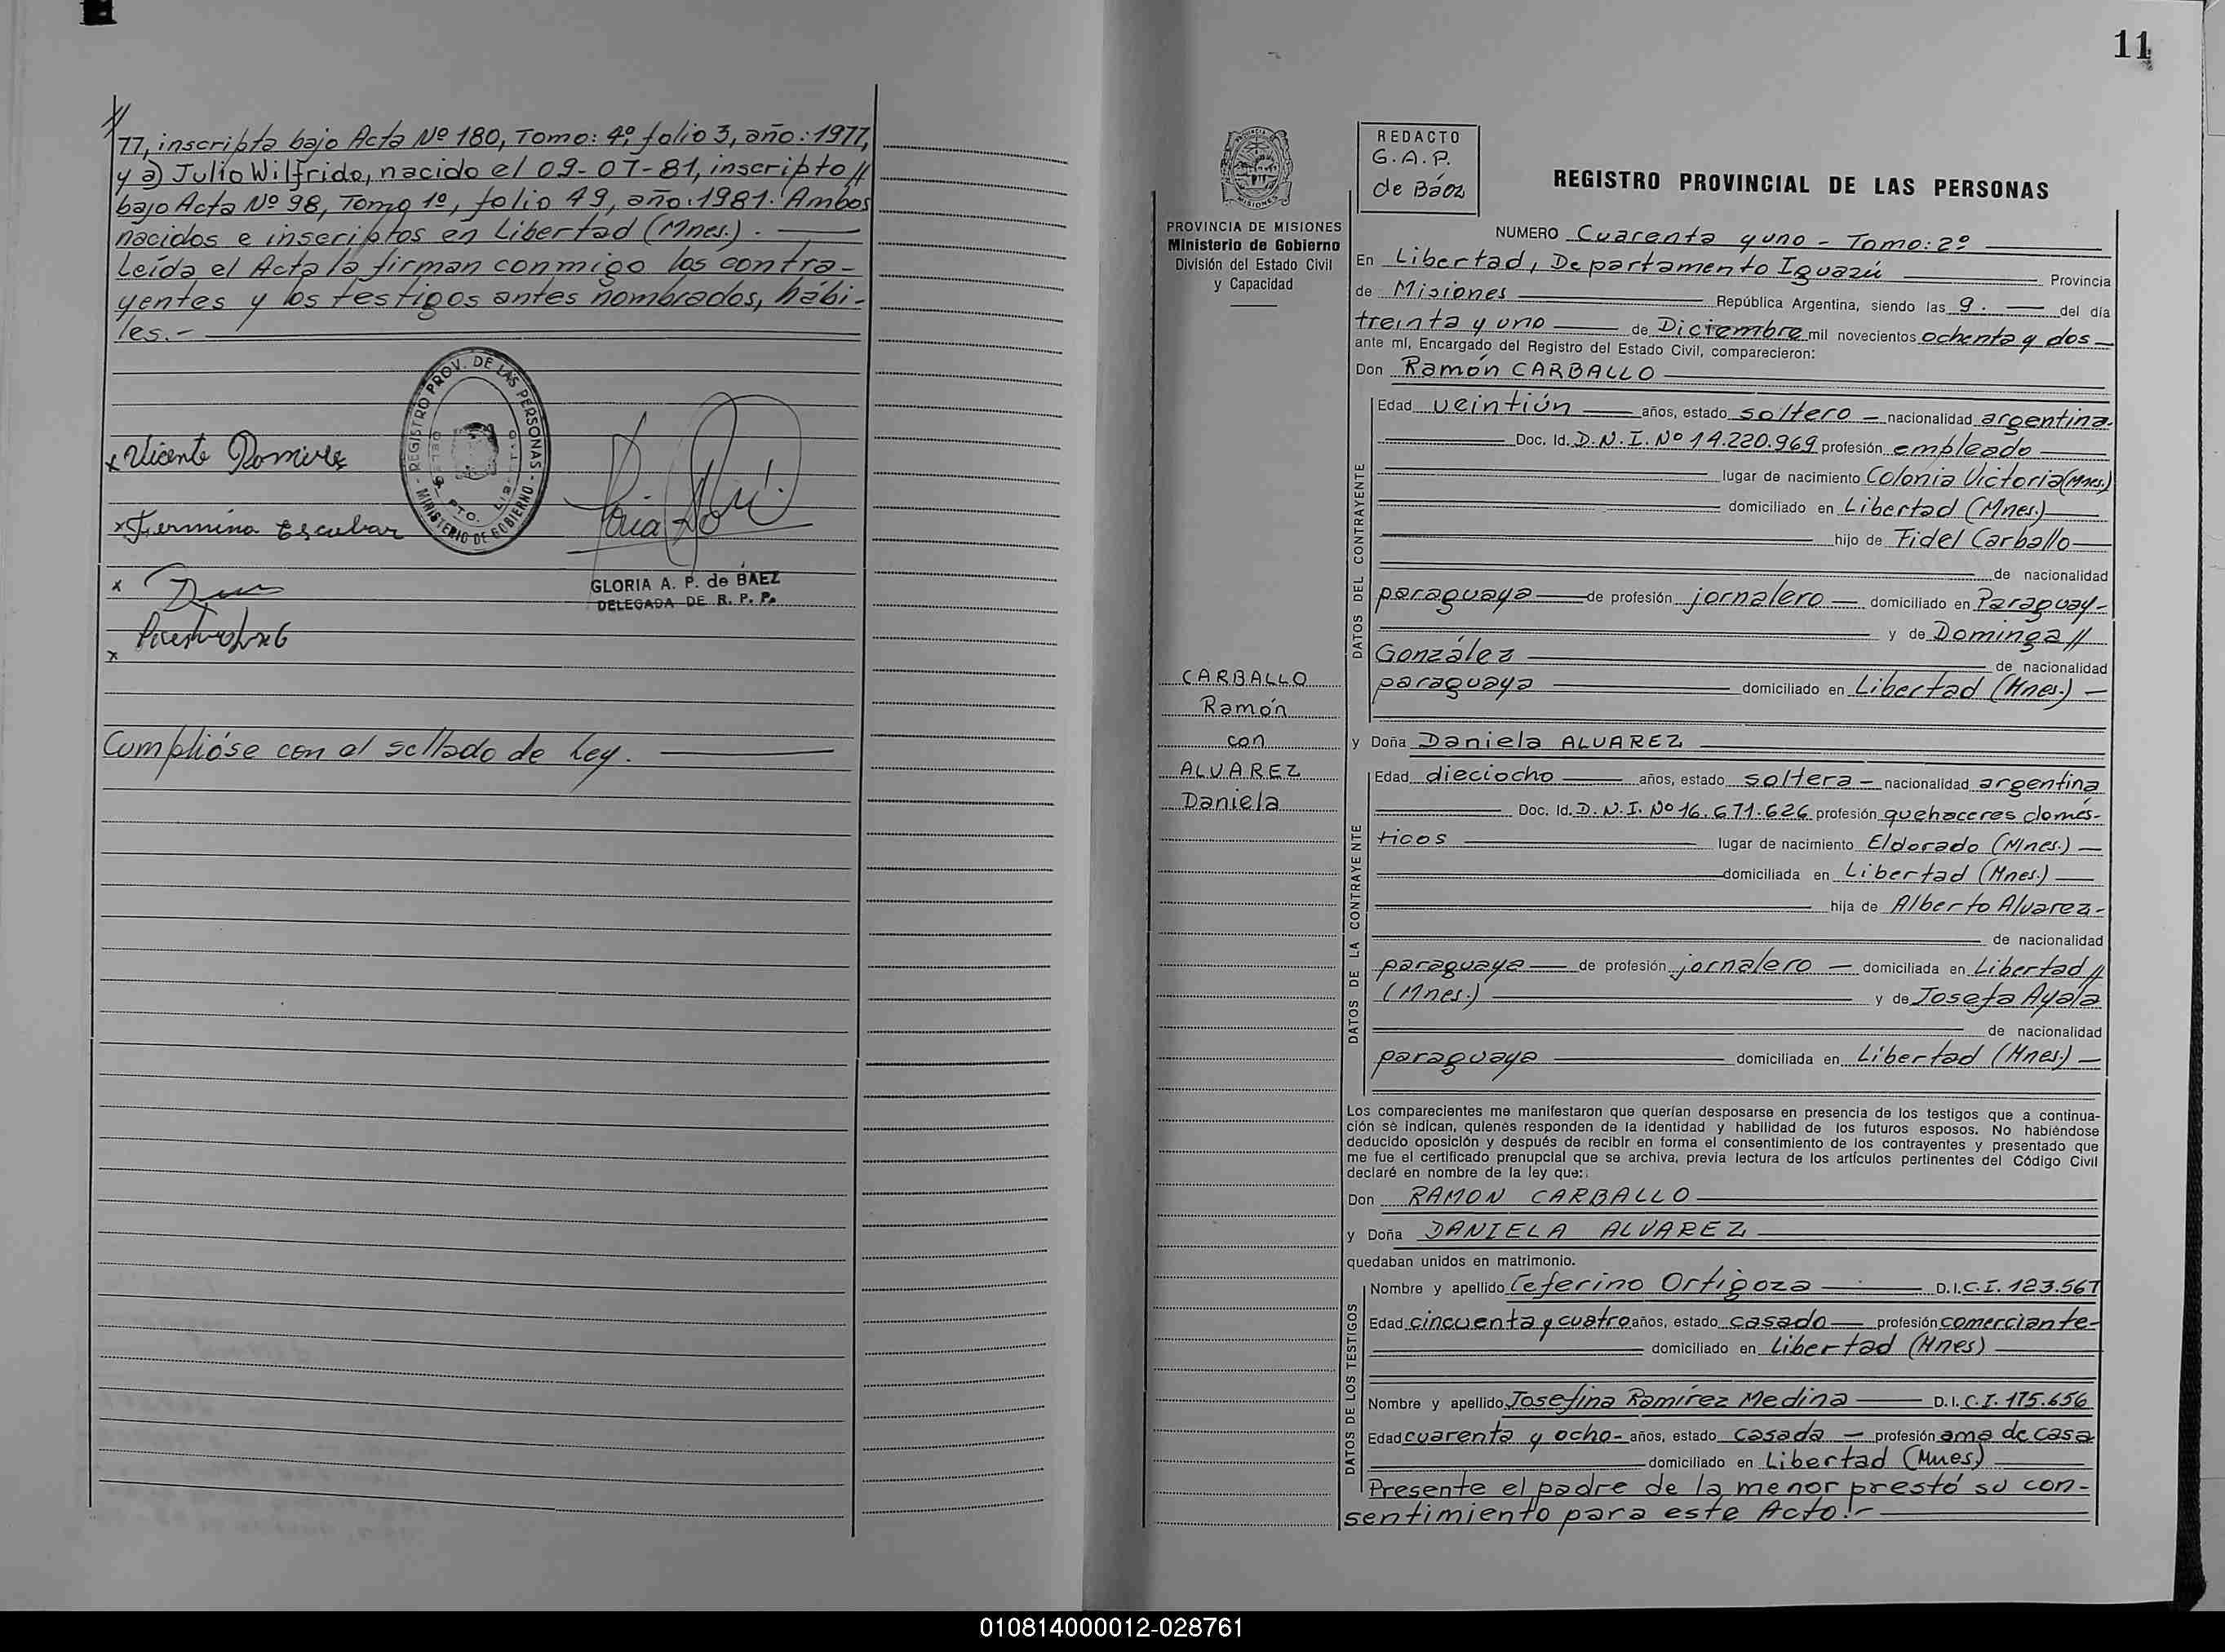 //
77, inscripta bajo Acta Nº 180, Tomo: 4º, folio 3, año: 1977,
y a) Julio Wilfrido, nacido el 09-07-81, inscripto //
bajo Acta Nº 98, Tomo 1º, folio 49, año: 1981. Ambos
nacidos e inscriptos en Libertad (Mnes.). -
Leída el Acta la firman conmigo los contra-
yentes y los testigos antes nombrados, hábi-
les.-
REGISTRO PROV. DE LAS PERSONAS - MINISTERIO DE GOBIERNO -
x Vicente Ramirez
x Fermina Escubar
x
x
GLORIA A. P. de BAEZ
DELEGADA DE R. P. P.
Cumplióse con el sellado de Ley.
11
PROVINCIA DE MISIONES
Ministerio de Gobierno
División del Estado Civil
y Capacidad
REDACTO
G. A. P.
de Báez
REGISTRO PROVINCIAL DE LAS PERSONAS
NUMERO Cuarenta y uno - Tomo: 2º
En Libertad, Departamento Iguazú Provincia
de Misiones República Argentina, siendo las 9. - del día
treinta y uno de Diciembre mil novecientos ochenta y dos
ante mí, Encargado del Registro del Estado Civil, comparecieron:
Don Ramón CARBALLO
DATOS DEL CONTRAYENTE
Edad veintiún años, estado soltero - nacionalidad argentina.
Doc. Id. D.N.I. Nº 14.220.969 profesión empleado
lugar de nacimiento Colonia Victoria (Mnes.)
domiciliado en Libertad (Mnes.)
hijo de Fidel Carballo
de nacionalidad
paraguaya de profesión jornalero - domiciliado en Paraguay-
y de Dominga //
González de nacionalidad
paraguaya domiciliado en Libertad (Mnes.) -
CARBALLO
Ramón
con
ALVAREZ
Daniela
y Doña Daniela ALVAREZ
DATOS DE LA CONTRAYENTE
Edad dieciocho años, estado soltera - nacionalidad argentina
Doc. Id. D.N.I. Nº 16.671.626 profesión quehaceres domés-
ticos lugar de nacimiento Eldorado (Mnes.) -
domiciliada en Libertad (Mnes.)
hija de Alberto Alvarez-
de nacionalidad
paraguaya de profesión jornalero - domiciliada en Libertad //
(Mnes.) y de Josefa Ayala
de nacionalidad
paraguaya domiciliada en Libertad (Mnes.) -
Los comparecientes me manifestaron que querían desposarse en presencia de los testigos que a continua-
ción se indican, quienes responden de la identidad y habilidad de los futuros esposos. No habiéndose
deducido oposición y después de recibir en forma el consentimiento de los contrayentes y presentado que
me fue el certificado prenupcial que se archiva, previa lectura de los artículos pertinentes del Código Civil
declaré en nombre de la ley que:
Don RAMON CARBALLO
y Doña DANIELA ALVAREZ
quedaban unidos en matrimonio.
DATOS DE LOS TESTIGOS
Nombre y apellido Ceferino Ortigoza D.I. C.I. 123.567
Edad cincuenta y cuatro años, estado casado profesión comerciante-
domiciliado en Libertad (Mnes)
Nombre y apellido Josefina Ramírez Medina D.I. C.I. 175.656
Edad cuarenta y ocho- años, estado casada - profesión ama de casa
domiciliado en Libertad (Mnes)
Presente el padre de la menor prestó su con-
sentimiento para este Acto.-
010814000012-028761